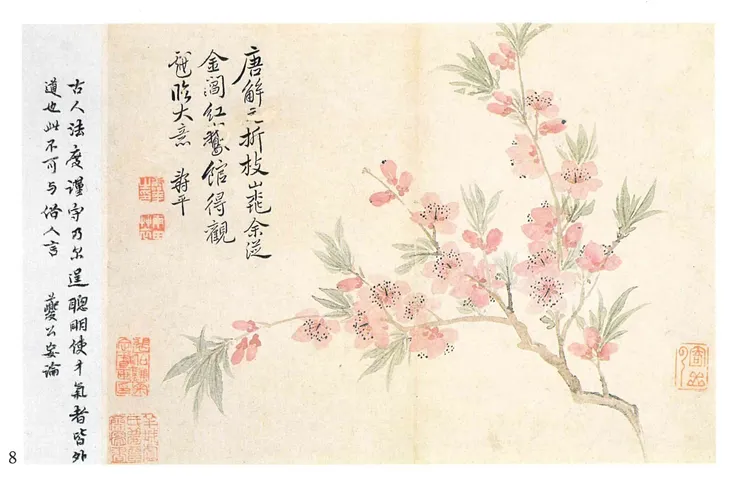 唐解元折枝山桃余從
金閶紅鵝館得觀
臨大意 壽平
古人法度謹守乃尔逞聰明使才氣者皆外
道也此不可与俗人言 夔公妄論
8